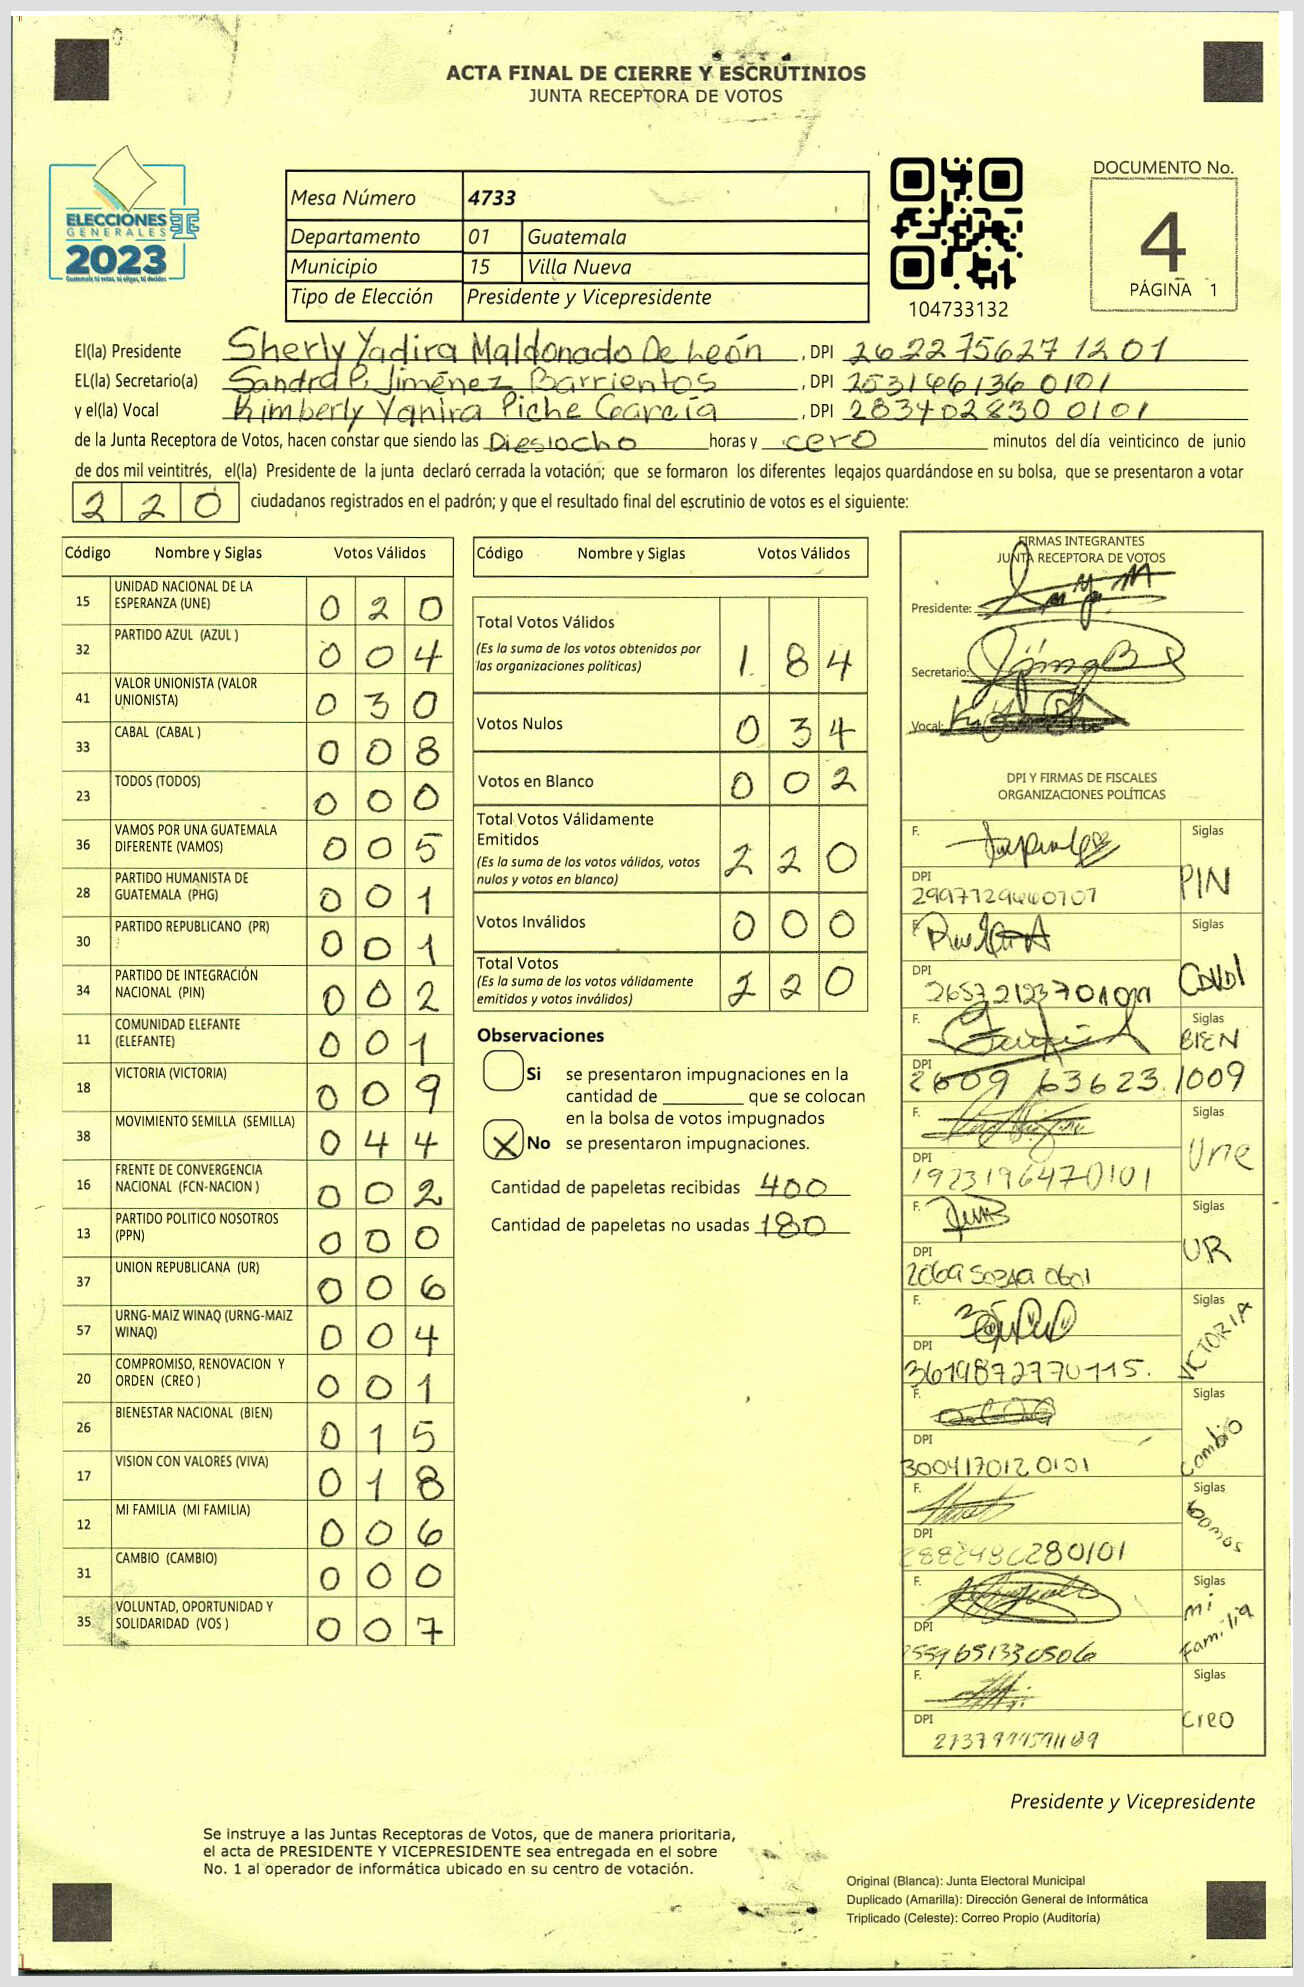 ACTA FINAL DE CIERRE Y ESCRUTINIOS
JUNTA RECEPTORA DE VOTOS
ELECCIONES
GENERALES
2023
Guatemala tú votas, tú eliges, tú decides
Mesa Número 4733
Departamento 01 Guatemala
Municipio 15 Villa Nueva
Tipo de Elección Presidente y Vicepresidente
104733132
DOCUMENTO No.
4
PÁGINA 1
El(la) Presidente Sherly Yadira Maldonado De León , DPI 2622756271201
EL(la) Secretario(a) Sandra P. Jiménez Barrientos , DPI 2531461360101
y el(la) Vocal Kimberly Yanira Piche García , DPI 2834028300101
de la Junta Receptora de Votos, hacen constar que siendo las Diesiocho horas y cero minutos del día veinticinco de junio
de dos mil veintitrés, el(la) Presidente de la junta declaró cerrada la votación; que se formaron los diferentes legajos quardándose en su bolsa, que se presentaron a votar
220 ciudadanos registrados en el padrón; y que el resultado final del escrutinio de votos es el siguiente:
Código Nombre y Siglas Votos Válidos
15 UNIDAD NACIONAL DE LA ESPERANZA (UNE) 020
32 PARTIDO AZUL (AZUL ) 004
41 VALOR UNIONISTA (VALOR UNIONISTA) 030
33 CABAL (CABAL ) 008
23 TODOS (TODOS) 000
36 VAMOS POR UNA GUATEMALA DIFERENTE (VAMOS) 005
28 PARTIDO HUMANISTA DE GUATEMALA (PHG) 001
30 PARTIDO REPUBLICANO (PR) 001
34 PARTIDO DE INTEGRACIÓN NACIONAL (PIN) 002
11 COMUNIDAD ELEFANTE (ELEFANTE) 001
18 VICTORIA (VICTORIA) 009
38 MOVIMIENTO SEMILLA (SEMILLA) 044
16 FRENTE DE CONVERGENCIA NACIONAL (FCN-NACION ) 002
13 PARTIDO POLITICO NOSOTROS (PPN) 000
37 UNION REPUBLICANA (UR) 006
57 URNG-MAIZ WINAQ (URNG-MAIZ WINAQ) 004
20 COMPROMISO, RENOVACION Y ORDEN (CREO ) 001
26 BIENESTAR NACIONAL (BIEN) 015
17 VISION CON VALORES (VIVA) 018
12 MI FAMILIA (MI FAMILIA) 006
31 CAMBIO (CAMBIO) 000
35 VOLUNTAD, OPORTUNIDAD Y SOLIDARIDAD (VOS ) 007
Código Nombre y Siglas Votos Válidos
Total Votos Válidos
(Es la suma de los votos obtenidos por
las organizaciones políticas) 184
Votos Nulos 034
Votos en Blanco 002
Total Votos Válidamente
Emitidos
(Es la suma de los votos válidos, votos
nulos y votos en blanco) 220
Votos Inválidos 000
Total Votos
(Es la suma de los votos válidamente
emitidos y votos inválidos) 220
Observaciones
Si se presentaron impugnaciones en la
cantidad de ________ que se colocan
en la bolsa de votos impugnados
X No se presentaron impugnaciones.
Cantidad de papeletas recibidas 400
Cantidad de papeletas no usadas 180
FIRMAS INTEGRANTES
JUNTA RECEPTORA DE VOTOS
Presidente:
Secretario:
Vocal:
DPI Y FIRMAS DE FISCALES
ORGANIZACIONES POLÍTICAS
F. Siglas
DPI PIN
F. Siglas
DPI
F. Siglas
BIEN
DPI
2609 63623 1009
F. Siglas
Une
DPI
1923196470101
F. Siglas
UR
DPI
F. Siglas
VICTORIA
DPI
3619872770115.
F. Siglas
Cambio
DPI
3004170120101
F. Siglas
bamos
DPI
F. Siglas
mi
Familia
DPI
F. Siglas
Creo
DPI
Presidente y Vicepresidente
Se instruye a las Juntas Receptoras de Votos, que de manera prioritaria,
el acta de PRESIDENTE Y VICEPRESIDENTE sea entregada en el sobre
No. 1 al operador de informática ubicado en su centro de votación.
Original (Blanca): Junta Electoral Municipal
Duplicado (Amarilla): Dirección General de Informática
Triplicado (Celeste): Correo Propio (Auditoría)